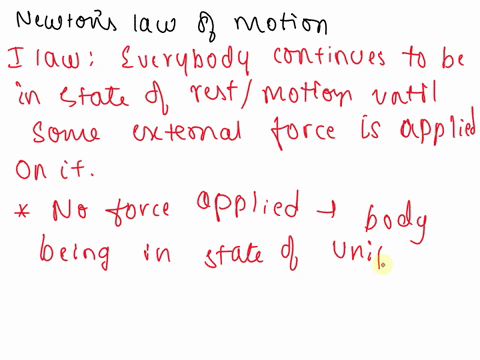 Newton's law of motion
I law: Everybody continues to be
in state of rest/motion until
some external force is applied
on it.
* No force applied → body
being in state of unif